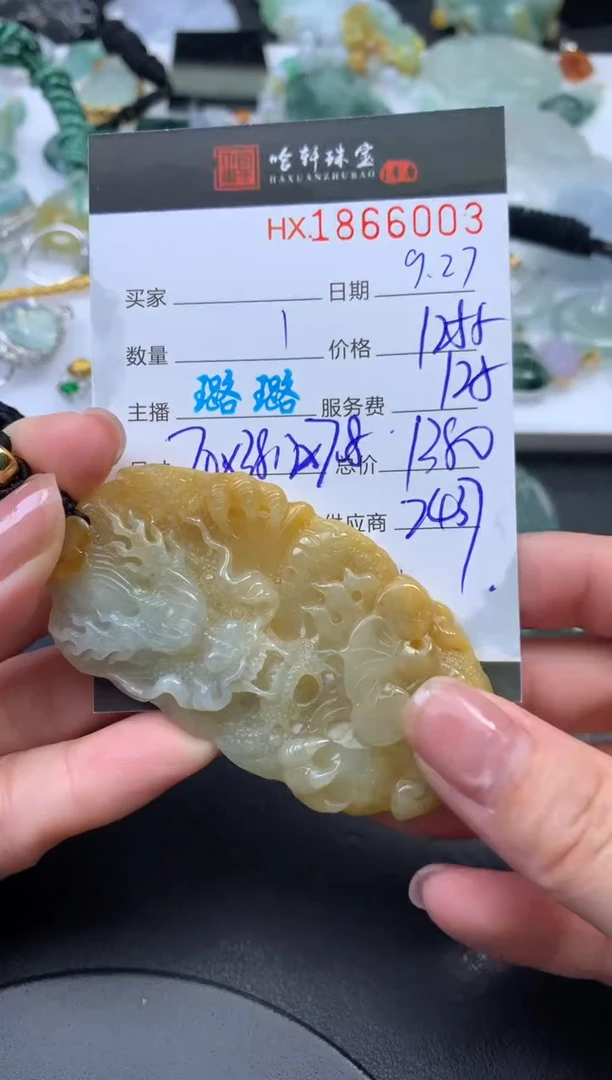 哈轩珠宝
HAXUANZHUBAO
HX.1866003
买家 日期 9.27
数量 1 价格 1255
主播 璐璐 服务费 125
70x38.2x7.8 总价 1380
供应商 2437